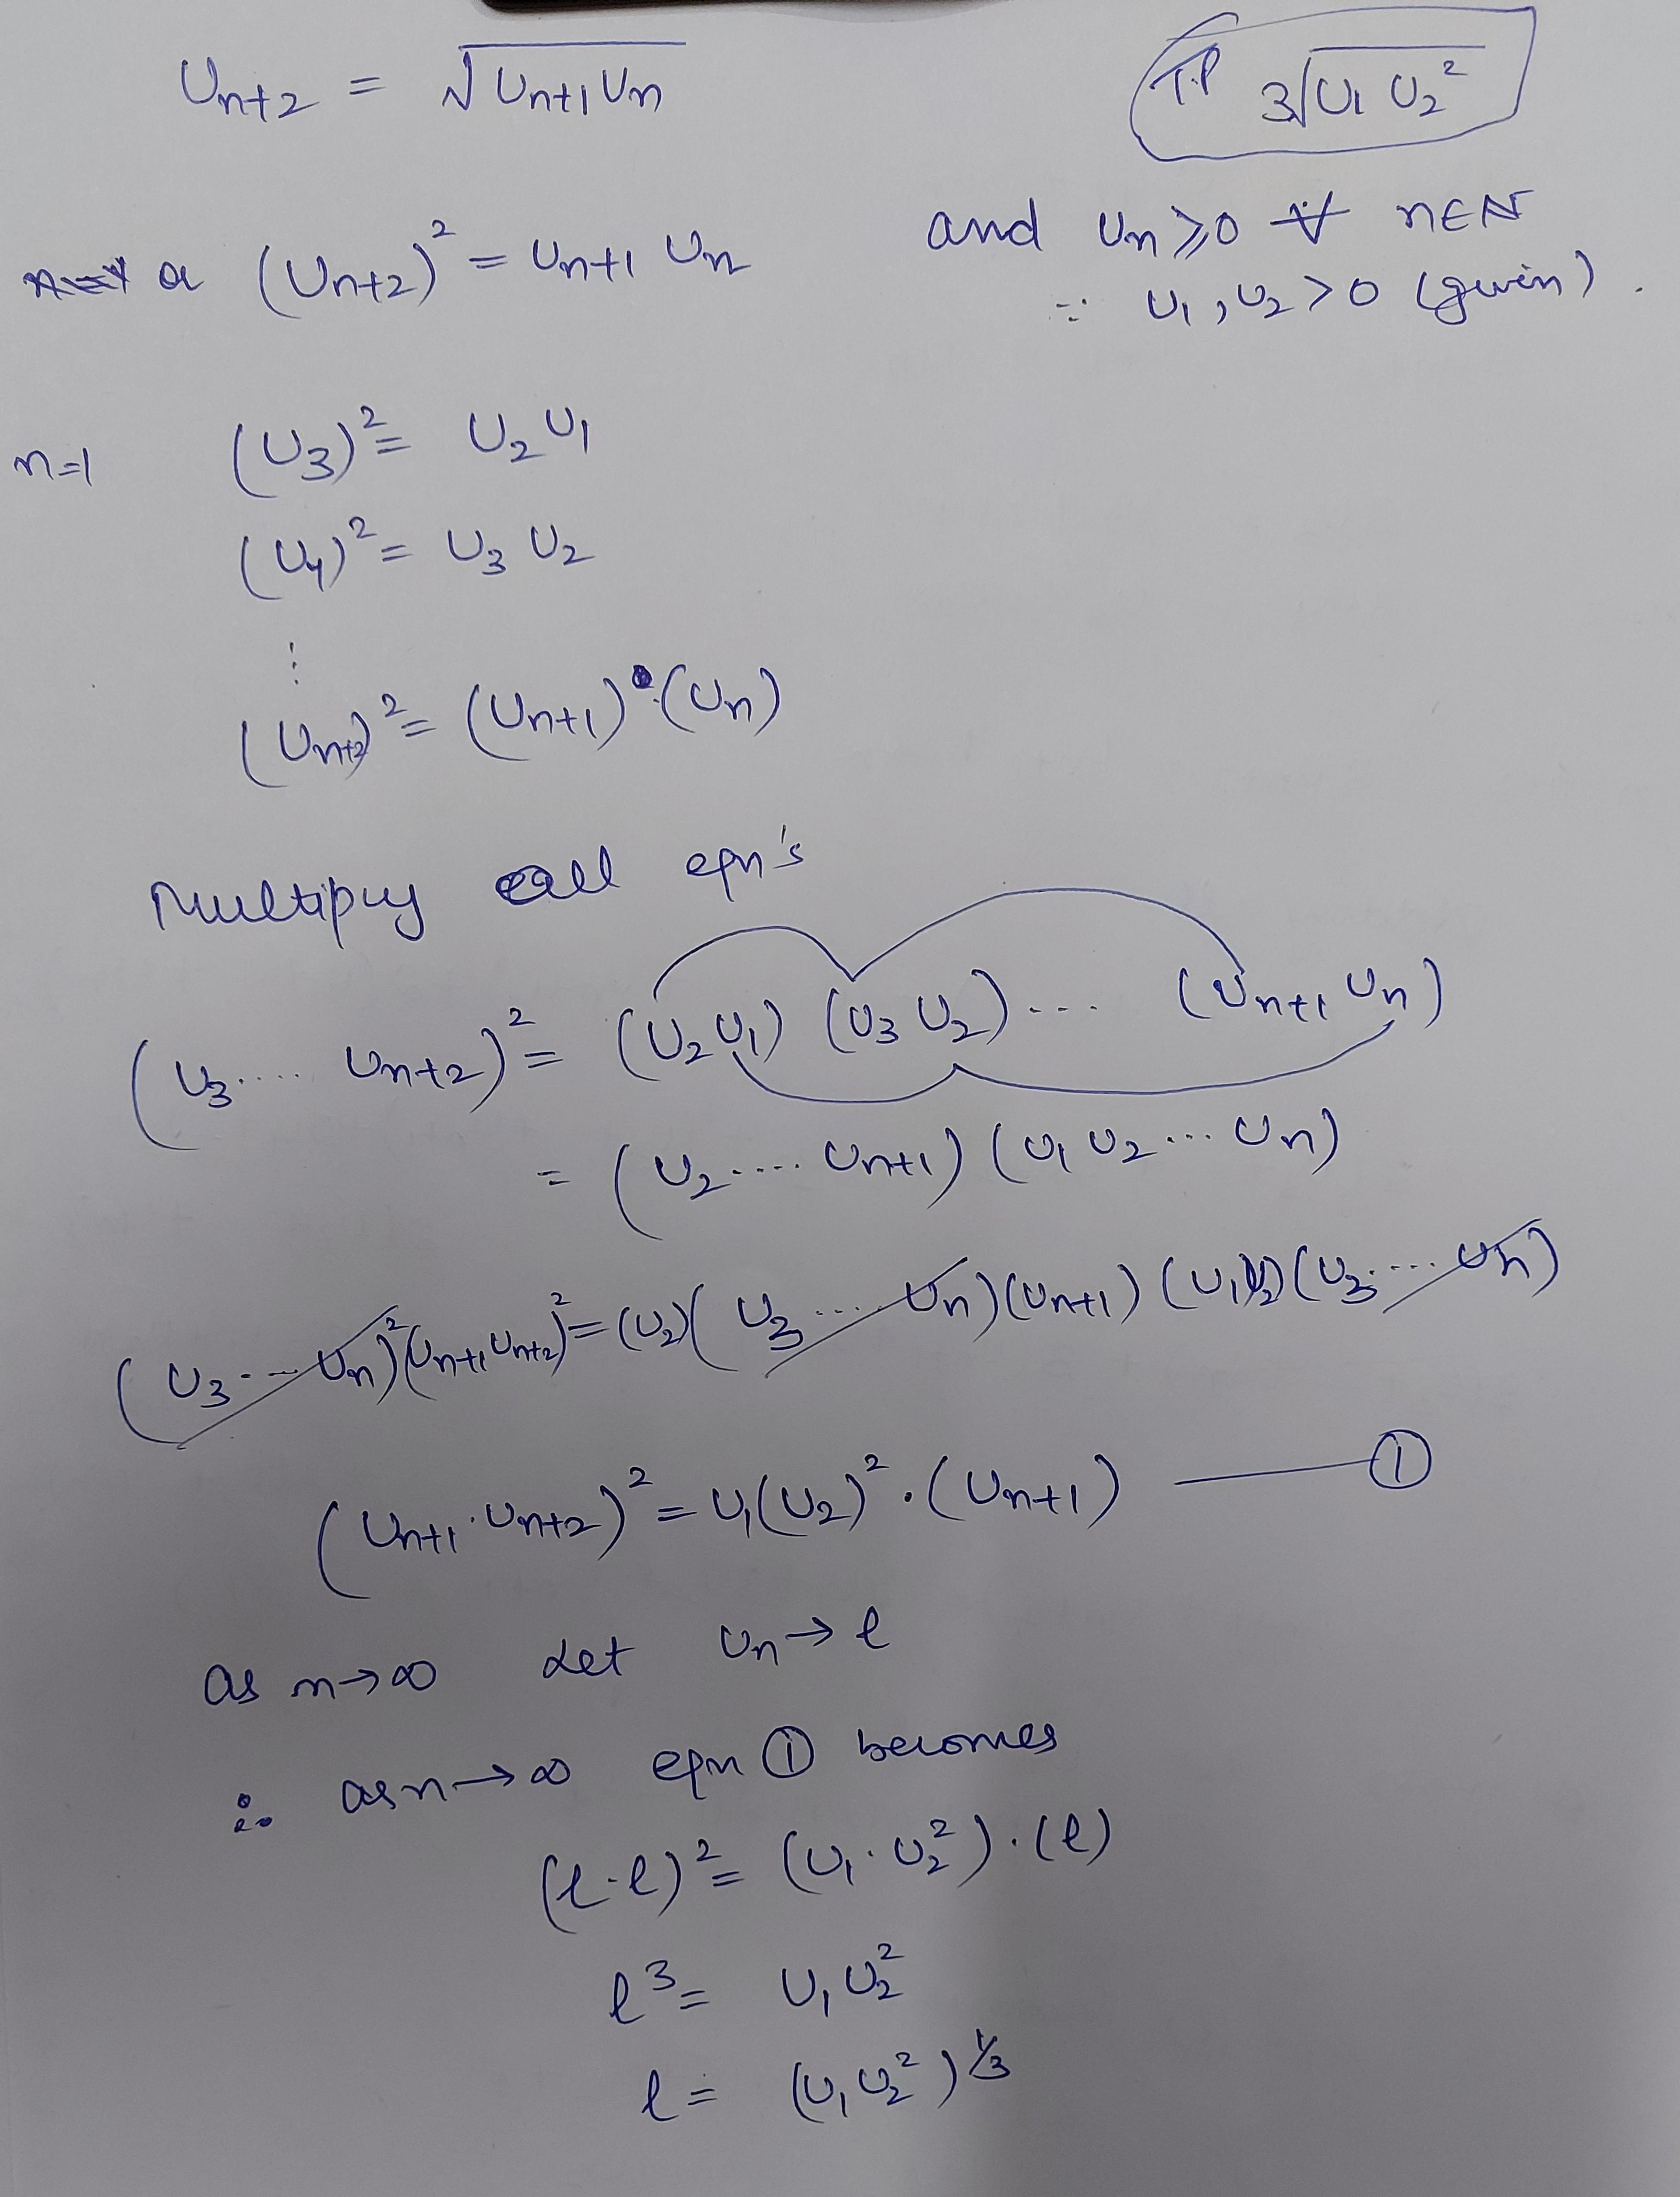 Un+2 = √Un+1 Un
T.P 3√U1 U2²
(Un+2)² = Un+1 Un
and Un ≥ 0 ∀ n∈N
∵ U1, U2 > 0 (given).
n=1 (U3)² = U2 U1
(U4)² = U3 U2
⋮
(Un+2)² = (Un+1)·(Un)
Multiply all eqn's
(U3.... Un+2)² = (U2 U1) (U3 U2).... (Un+1 Un)
= (U2..... Un+1) (U1 U2 ... Un)
(U3... Un)² (Un+1 Un+2)² = (U2)(U3 .... Un)(Un+1) (U1 U2)(U3.... Un)
(Un+1 · Un+2)² = U1(U2)² · (Un+1) —— ①
as n→∞ Let Un → l
∴ as n→∞ eqn ① becomes
(l·l)² = (U1 · U2²) · (l)
l³ = U1 U2²
l = (U1 U2²)^1/3